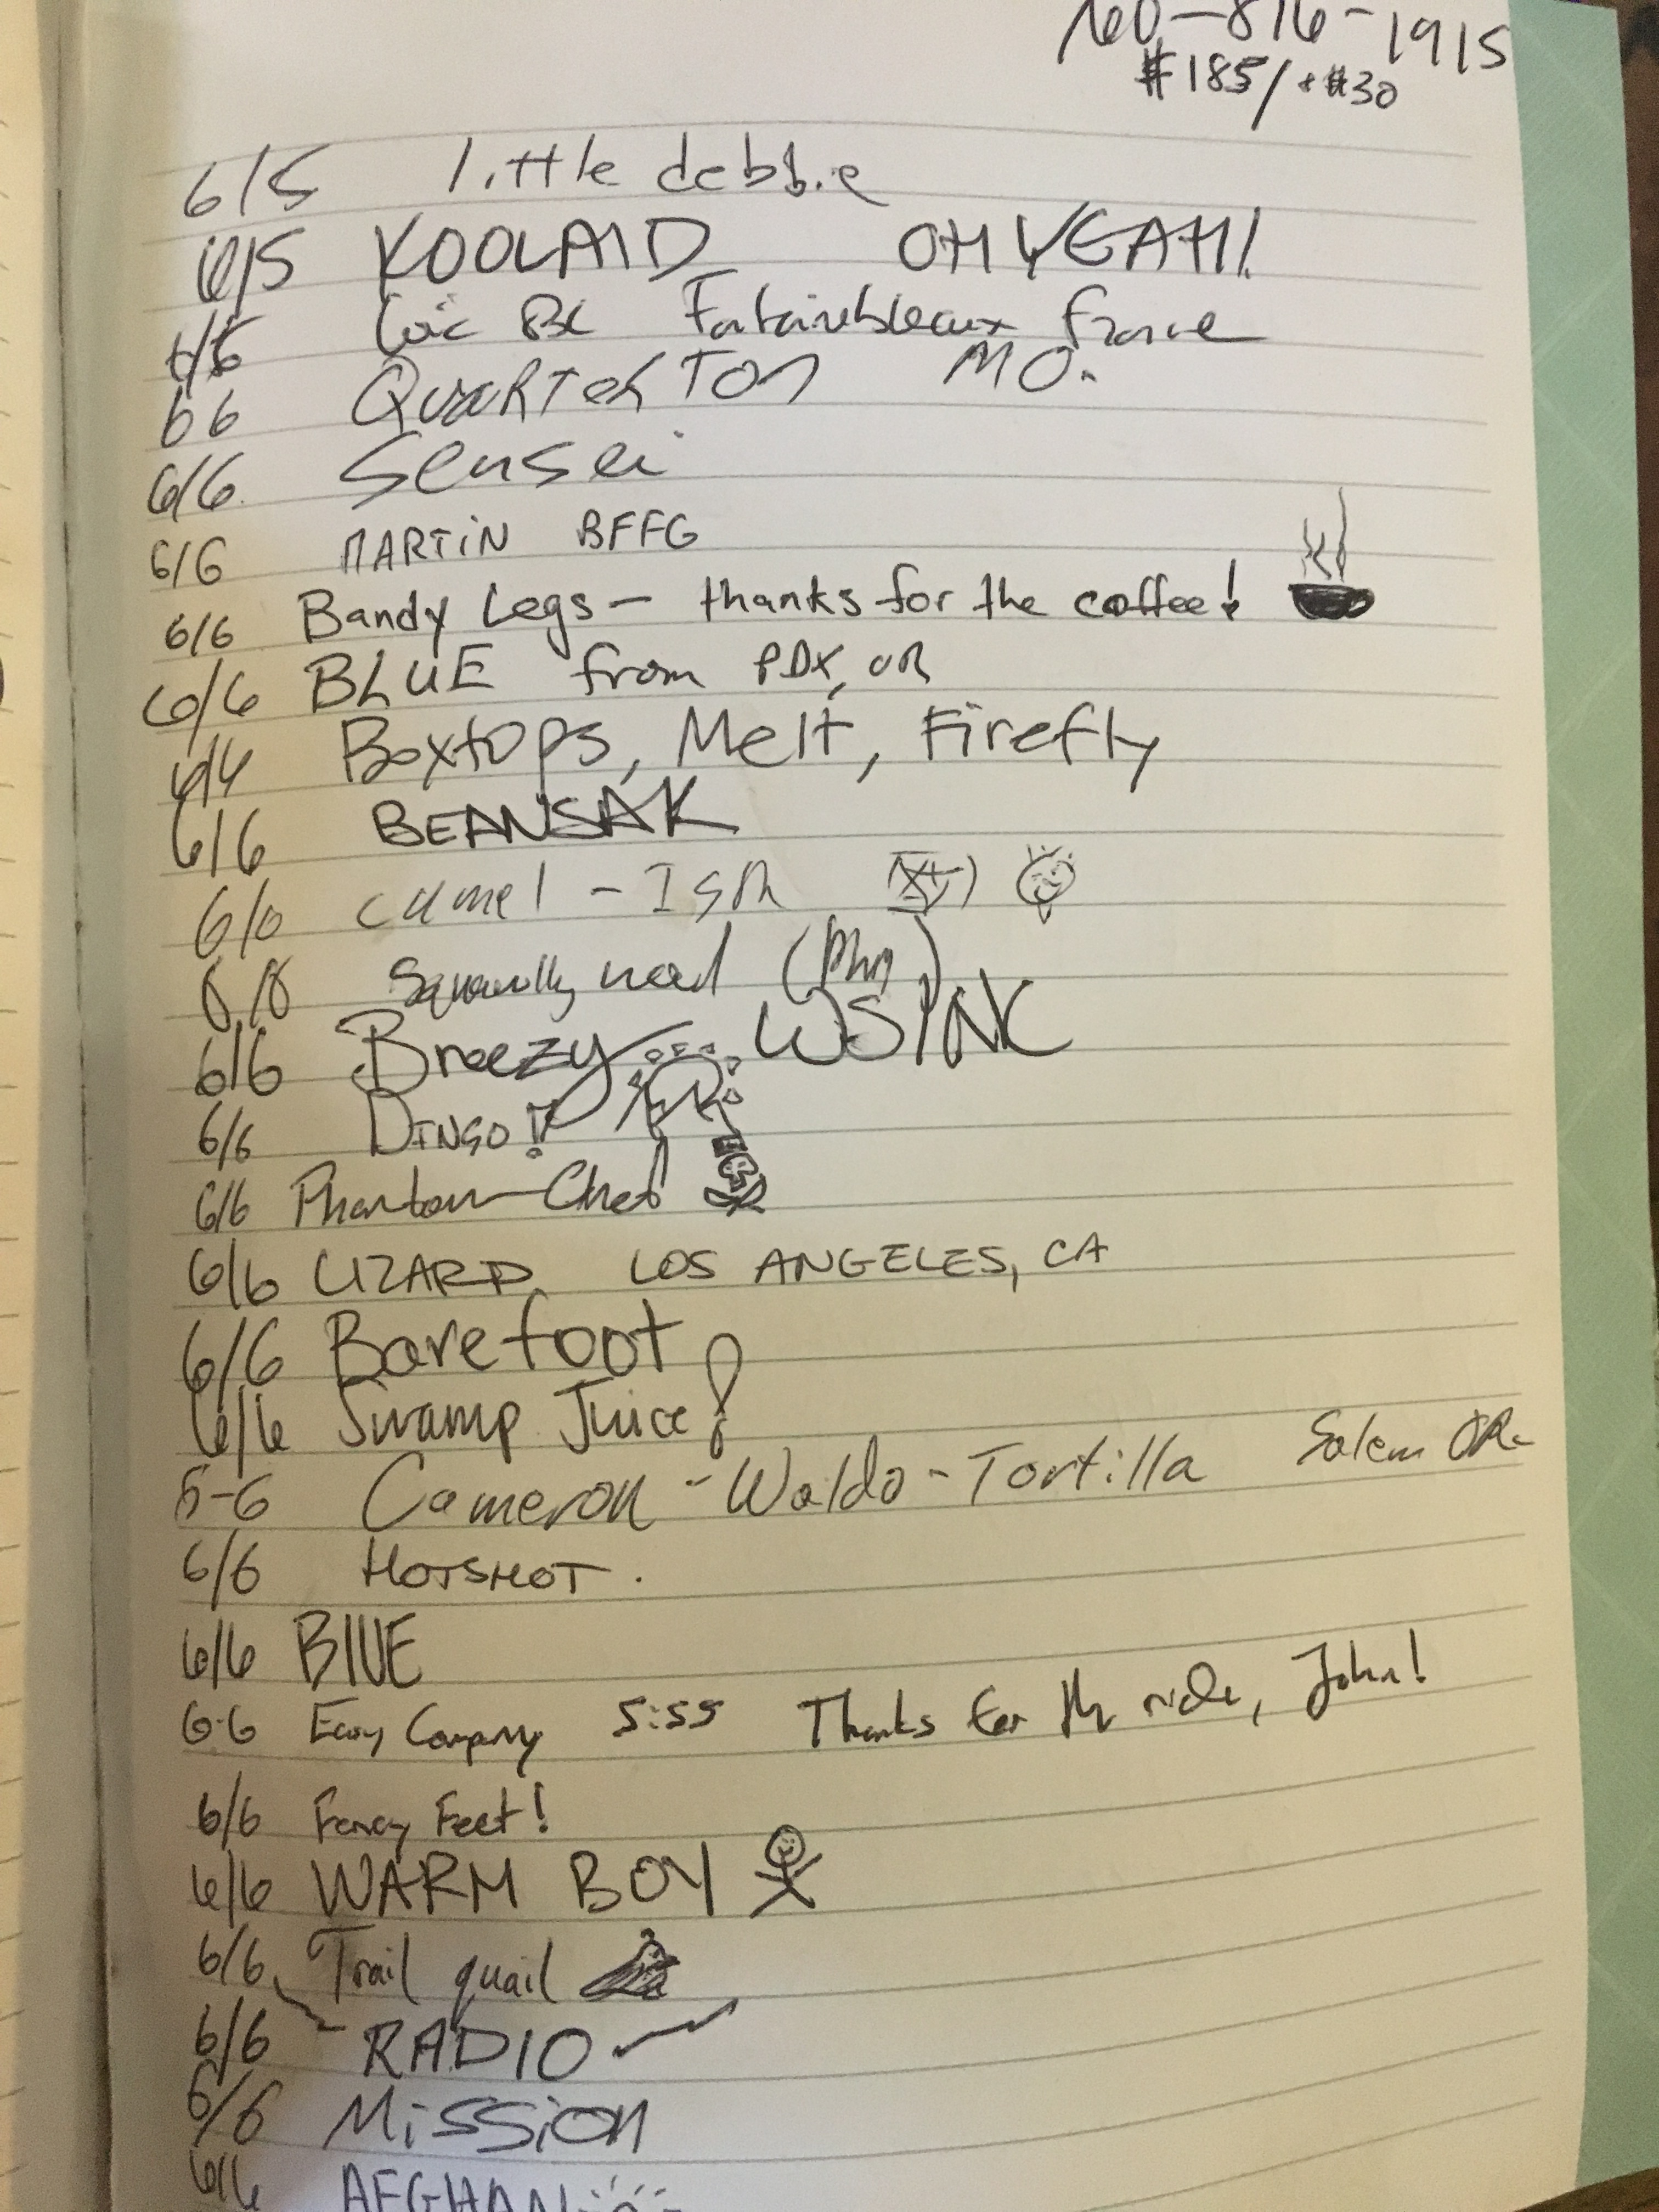 760-816-1915
#185/+#30
6/5 little debbie
6/5 KOOLAID OH YEAH!
Loic BC France
66 Quarter Ton MO.
6/6 Sensei
6/6 MARTiN BFFG
6/6 Bandy Legs - thanks for the coffee!
6/6 BLUE from PDX, OR
6/6 Boxtops, Melt, Firefly
6/6 BEANSAK
camel - ISR
6/6 Breezy WSINC
6/6 DINGO!
6/6 Phantom Chef
6/6 LIZARD LOS ANGELES, CA
6/6 Barefoot
6/6 Swamp Juice!
6-6 Cameron - Waldo - Tortilla Salem OR
6/6 HOTSHOT.
6/6 BlUE
6-6 Easy Company 5:55 Thanks for the ride, John!
6/6 Fancy Feet!
6/6 WARM BOY
6/6 Trail quail
6/6 - RADIO -
6/6 Mission
6/6 AFGHAN